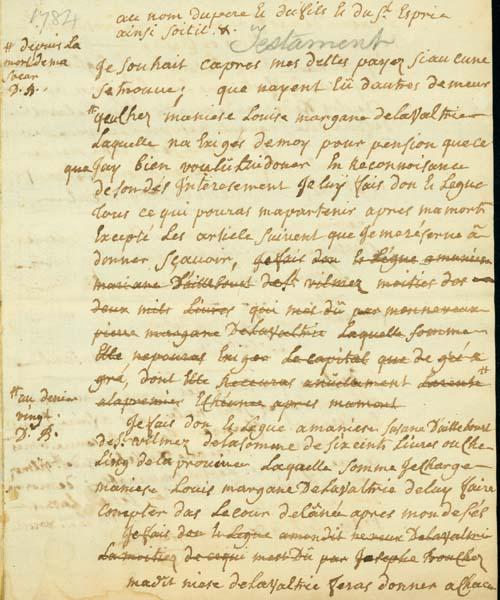 1784
au nom du pere & du fils & du St. Esprit
ainsi soit il &.
Testament
# depuis la
mort de ma
soeur
D. B.
Je souhait capres mes dettes payez si aucune
se trouve; que nayent eü dautres demeur
# qeu chez ma niese Louise margane de lavaltrie
Laquelle na Exigés de moy pour pension que ce
que Jay bien voulü Lui doner En Reconnoisance
de son dés Interesement Je luÿ fais don & Legue
tous ce qui pouras mapartenir apres ma mort
Excepté Les article suivent que Je me reserve à
donner sçavoir, Je fais don & Légue a ma niese
mariane Daillebout de St. vilmez moities des
deux mils Livres qui mest dü par mon neveux
pierre margane De Lavaltrie Laquelle somme
Elle ne pouras Exiger Le capital que de gré a
gré, dont Elle Receuras anuelement La rente #
a la premier Echeance apres ma mort
# au denier
vingt.
D. B.
Je fais don & Legue a ma niese susane Daillebout
de St. vilmez de la somme de six cents Livres ou che
Ling de la province Laquelle somme Je charge
ma niese Louis margane De Lavaltrie de luy faire
compter das Le cour de Lânée apres mon desés
Je fais don & Legue a mondit neveux De Lavaltrie
La moitiez de ce qui mest Dü par Josephe
ma dit niese de lavaltrie feras donner a chace